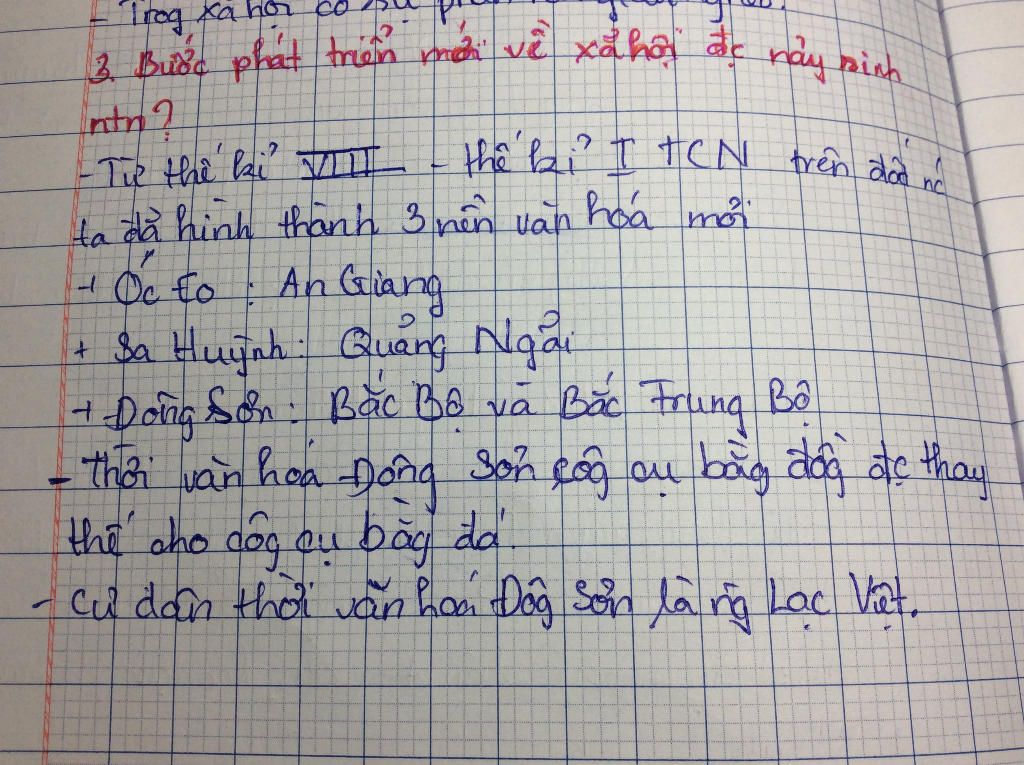 - Trog xã hội có sự
3. Bước phát triển mới về xã hội đc nảy sinh
ntn?
- Từ thế kỉ VIII - thế kỉ I TCN trên đất nc
ta đã hình thành 3 nền văn hoá mới
+ Óc Eo : An Giang
+ Sa Huỳnh: Quảng Ngãi
+ Đông Sơn: Bắc Bộ và Bắc Trung Bộ
- Thời văn hoá Đông Sơn côg cụ bằg đồg đc thay
thế cho côg cụ bằg đá.
- Cư dân thời văn hoá Đôg Sơn là ng Lạc Việt.